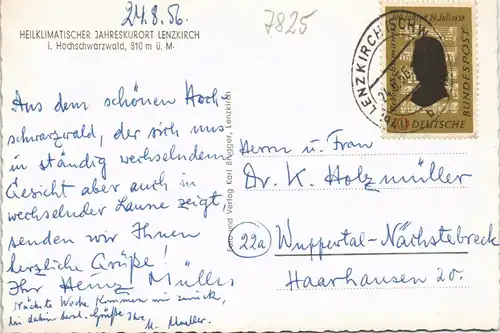 24.8.56.
7825
HEILKLIMATISCHER JAHRESKURORT LENZKIRCH
i. Hochschwarzwald, 810 m ü. M.
Aus dem schönen Hoch-
schwarzwald, der sich uns
in ständig wechselndem
Gesicht aber auch in
wechselnder Laune zeigt,
senden wir Ihnen
herzliche Grüße!
Ihr Heinz Müller
Nächste Woche kommen wir zurück,
bis dahin herzl. Grüße Ihre
M. Müller.
Foto und Verlag Karl Brugger, Lenzkirch
LENZKIRCH (SCHW
24.8.56
10
DEUTSCHE BUNDESPOST
Herrn u. Frau
Dr. K. Holzmüller
22a Wuppertal-Nächstebreck
Haarhausen 20.